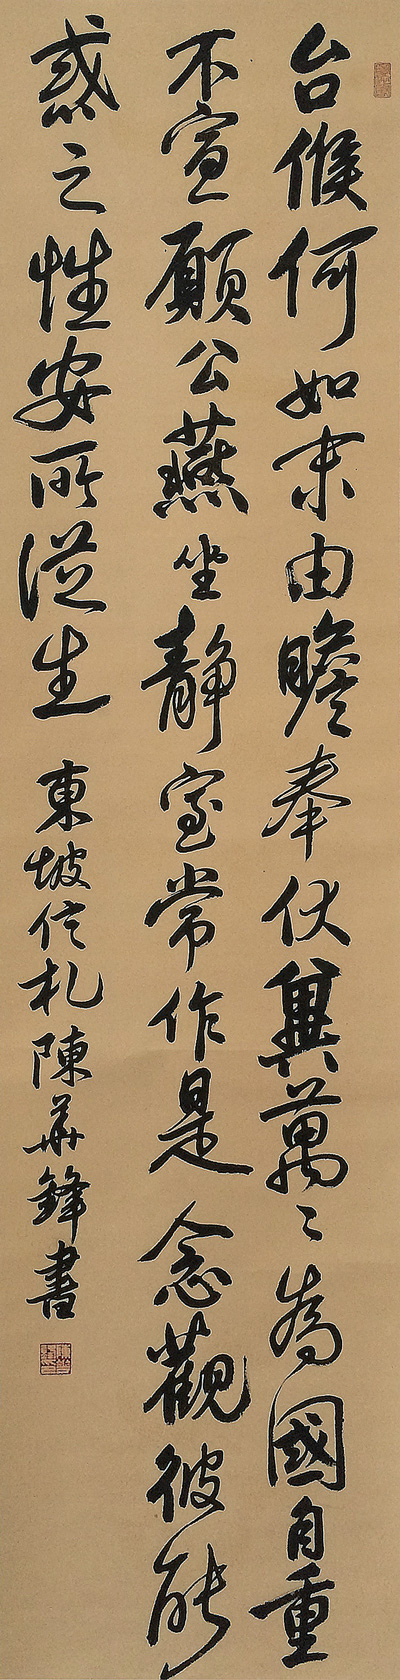 台候何如未由瞻奉伏冀萬〻為國自重
不宣願公燕坐静室常作是念觀彼能
惑之性安所從生
東坡信札陳華鋒書